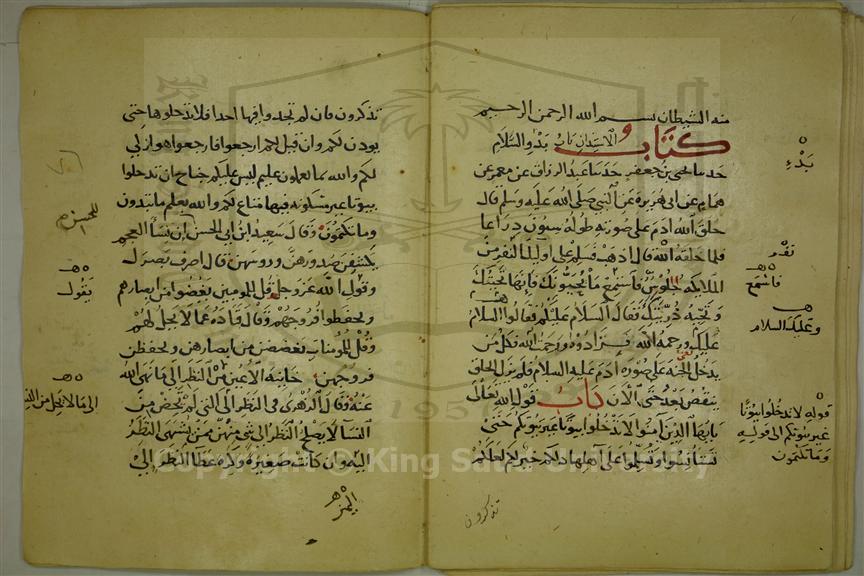 منه الشيطان بسم الله الرحمن الرحيم
كتاب الاستئذان باب بدو السلام
حدثنا يحيى بن جعفر حدثنا عبد الرزاق عن معمر عن
همام عن ابى هريرة عن النبي صلى الله عليه وسلم قال
خلق الله ادم على صورته طوله ستون ذراعا
فلما خلقه الله قال اذهب فسلم على اوليك النفر من
الملايكه جلوس فاستمع ما يحيونك فانها تحيتك
وتحية ذريتك فقال السلام عليكم فقالوا السلام
عليك ورحمه الله فزادوه ورحمت الله فكل من
يدخل الجنه على صورة ادم عليه السلام فلم يزل الخلق
ينقص بعد حتى الان باب قول الله تعالى
يايها الذين آمنوا لا تدخلوا بيوتا غير بيوتكم حتى
تستأنسوا وتسلموا على اهلها ذلكم خير لكم لعلكم
تذكرون
بدء
فاستمع
وعليك السلام
قوله لا تدخلوا بيوتا
غير بيوتكم الى قوله
وما تكتمون
تذكرون فان لم تجدوا فيها احدا فلا تدخلوها حتى
يوذن لكم وان قيل لكم ارجعوا فارجعوا هو ازكي
لكم والله بما تعملون عليم ليس عليكم جناح ان تدخلوا
بيوتا غير مسكونه فيها متاع لكم والله يعلم ما تبدون
وما تكتمون وقال سعيد ابن ابي الحسن ان نسا العجم
يكشفن صدورهن وروسهن قال اصرف بصرك
وقول الله عز وجل قل للمومنين يغضوا من ابصارهم
ويحفظوا فروجهم وقال قتاده عما لا يحل لهم
وقل للمومنات يغضضن من ابصارهن ويحفظن
فروجهن خاينة الاعين من النظر الى ما نهى الله
عنه وقال الزهري فى النظر الى التي لم تحض من
النسا لا يصلح النظر الى شي منهن ممن يشتهى النظر
اليه وان كانت صغيرة وكره عطا النظر الى
للحسن
يقول
الى ما لا يحل من
Copyright © King Saud University
1957